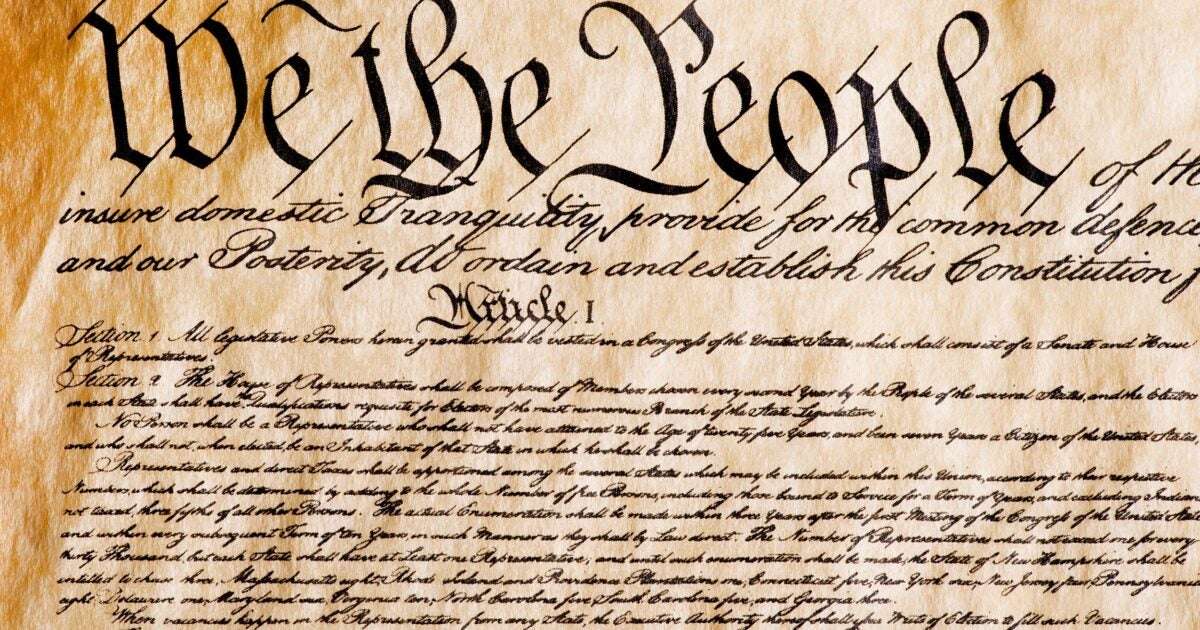 We the People of the
insure domestic Tranquility, provide for the common defence
and our Posterity, do ordain and establish this Constitution f
Article. I.
Section. 1. All legislative Powers herein granted shall be vested in a Congress of the United States, which shall consist of a Senate and House
of Representatives.
Section. 2. The House of Representatives shall be composed of Members chosen every second Year by the People of the several States, and the Electors
in each State shall have the Qualifications requisite for Electors of the most numerous Branch of the State Legislature.
No Person shall be a Representative who shall not have attained to the Age of twenty five Years, and been seven Years a Citizen of the United States,
and who shall not, when elected, be an Inhabitant of that State in which he shall be chosen.
Representatives and direct Taxes shall be apportioned among the several States which may be included within this Union, according to their respective
Numbers, which shall be determined by adding to the whole Number of free Persons, including those bound to Service for a Term of Years, and excluding Indians
not taxed, three fifths of all other Persons. The actual Enumeration shall be made within three Years after the first Meeting of the Congress of the United States,
and within every subsequent Term of ten Years, in such Manner as they shall by Law direct. The Number of Representatives shall not exceed one for every
thirty Thousand, but each State shall have at Least one Representative; and until such enumeration shall be made, the State of New Hampshire shall be
entitled to chuse three, Massachusetts eight, Rhode Island and Providence Plantations one, Connecticut five, New York six, New Jersey four, Pennsylvania
eight, Delaware one, Maryland six, Virginia ten, North Carolina five, South Carolina five, and Georgia three.
When vacancies happen in the Representation from any State, the Executive Authority thereof shall issue Writs of Election to fill such Vacancies.